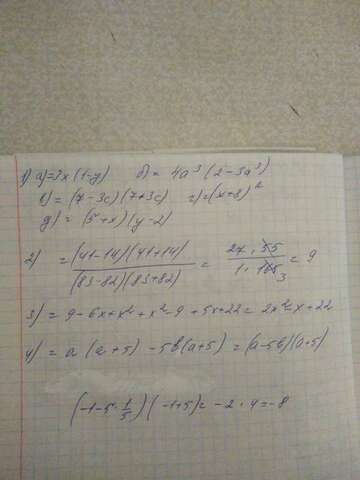 1) а) = 3x (1-y) б) = 4a³ (2-3a³)
в) = (7-3c)(7+3c) г) = (x+8)²
д) = (5+x)(y-2)
2) = (41-14)(41+14) / (83-82)(83+82) = 27 · 55 / 1 · 165 3 = 9
3) = 9-6x+x²+x²-9+5x+22 = 2x²-x+22
4) = a (a+5) -5b(a+5) = (a-5b)(a+5)
(-1-5·1/5)(-1+5) = -2·4=-8